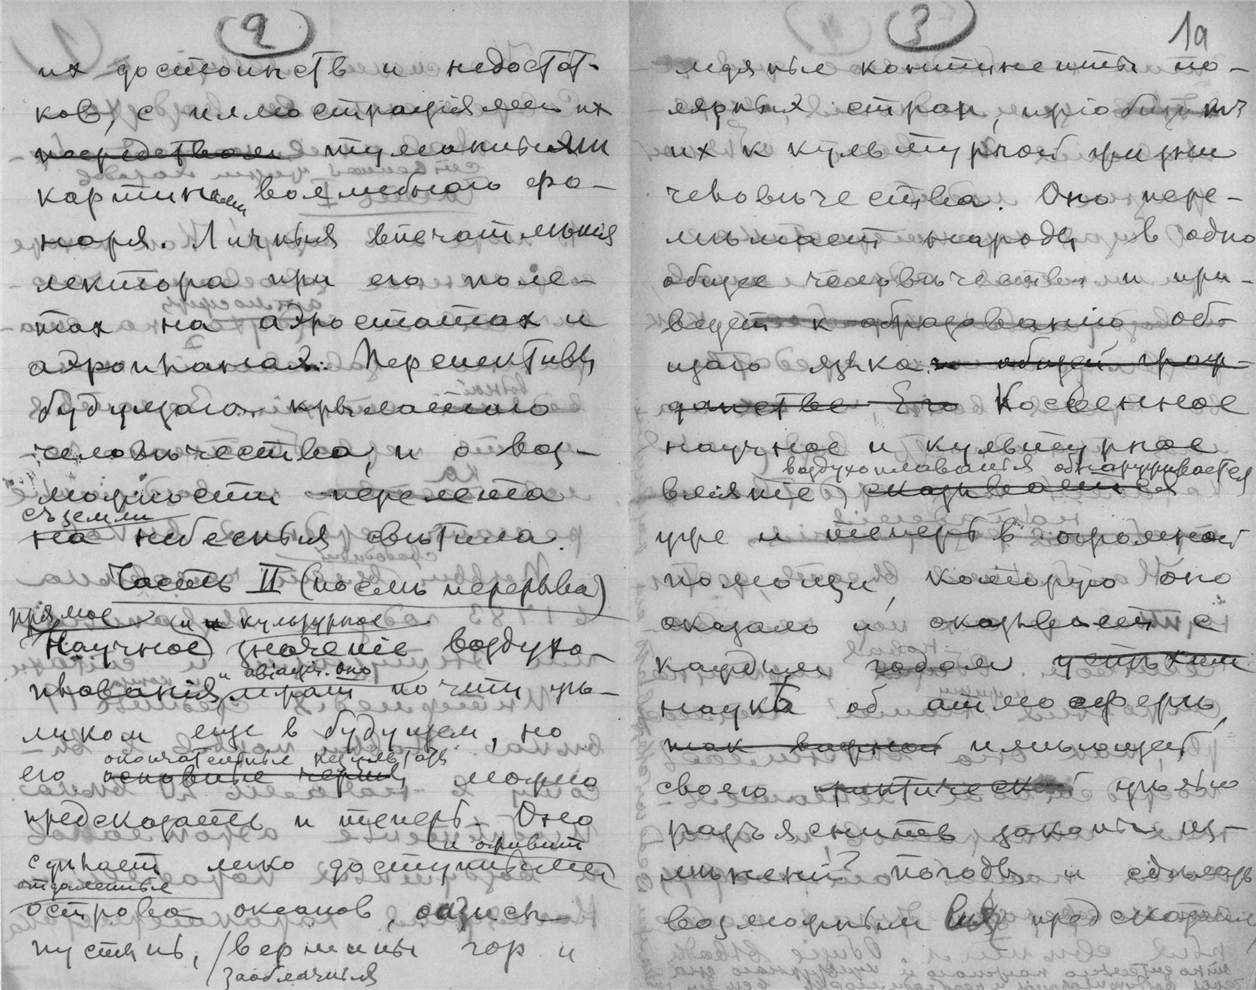 2
ихъ достоинствъ и недостат-
ковъ, съ иллюстраціями ихъ
посредствомъ туманными
картинами волшебнаго фо-
наря. Личныя впечатлѣнія
лектора при его поле-
тах на аэростатах и
аэропланах. Перспективы
будущаго крылатаго
человѣчества, и о воз-
можности перелета
съ земли
на небесныя свѣтила.
Часть II (послѣ перерыва)
прямое и культурное
Научное значеніе воздухо-
и авіаціи оно
плованія, лежит почти цѣ-
ликом еще в будущем, но
окончательные результаты
его основные черты, можно
предсказать и теперь. Оно
и оживит
сдѣлает легко доступными
отдаленные
острова океанов, оазисы
пустынь, вершины гор и
заоблачныя
3
1а
ледяные континенты по-
лярных стран, пріобщит
их к культурной жизни
человѣчества. Оно пере-
мѣшает народы в одно
общее человѣчество и при-
ведет к образованію об-
щаго языка и общей граж-
данстве Его Косвенное
научное и культурное
воздухоплаванія обнаруживается
вліяніе сказывается
уже и теперь в огромной
помощи, которую оно
оказало и оказывает с
каждым годом успѣхам
наукѣ об атмосферѣ,
так важной имѣющей
своею практической цѣлью
разъяснить законы из-
мѣненій погоды и сдѣлать
возможным их предсказанія